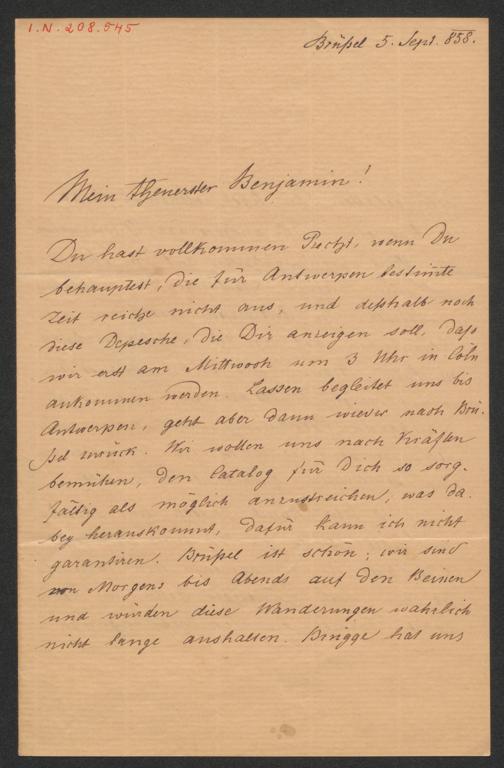 I.N. 208.545
Brüßel 5. Sept. 858.
Mein theuerster Benjamin!
Du hast vollkommen Recht, wenn Du
behauptest, die für Antwerpen bestim̅te
Zeit reiche nicht aus, und deßhalb noch
diese Depesche, die Dir anzeigen soll, daß
wir erst am Mittwoch um 3 Uhr in Cöln
ankommen werden. Lassen begleitet uns bis
Antwerpen, geht aber dann wieder nach Brü-
ßel zurück. Wir wollen uns nach Kräften
bemühen, den Catalog für Dich so sorg-
fältig als möglich anzustreichen, was da-
bey herauskommt, dafür kann ich nicht
garantiren. Brüßel ist schön; wir sind
von Morgens bis Abends auf den Beinen
und würden diese Wanderungen wahrlich
nicht lange aushalten. Brügge hat uns